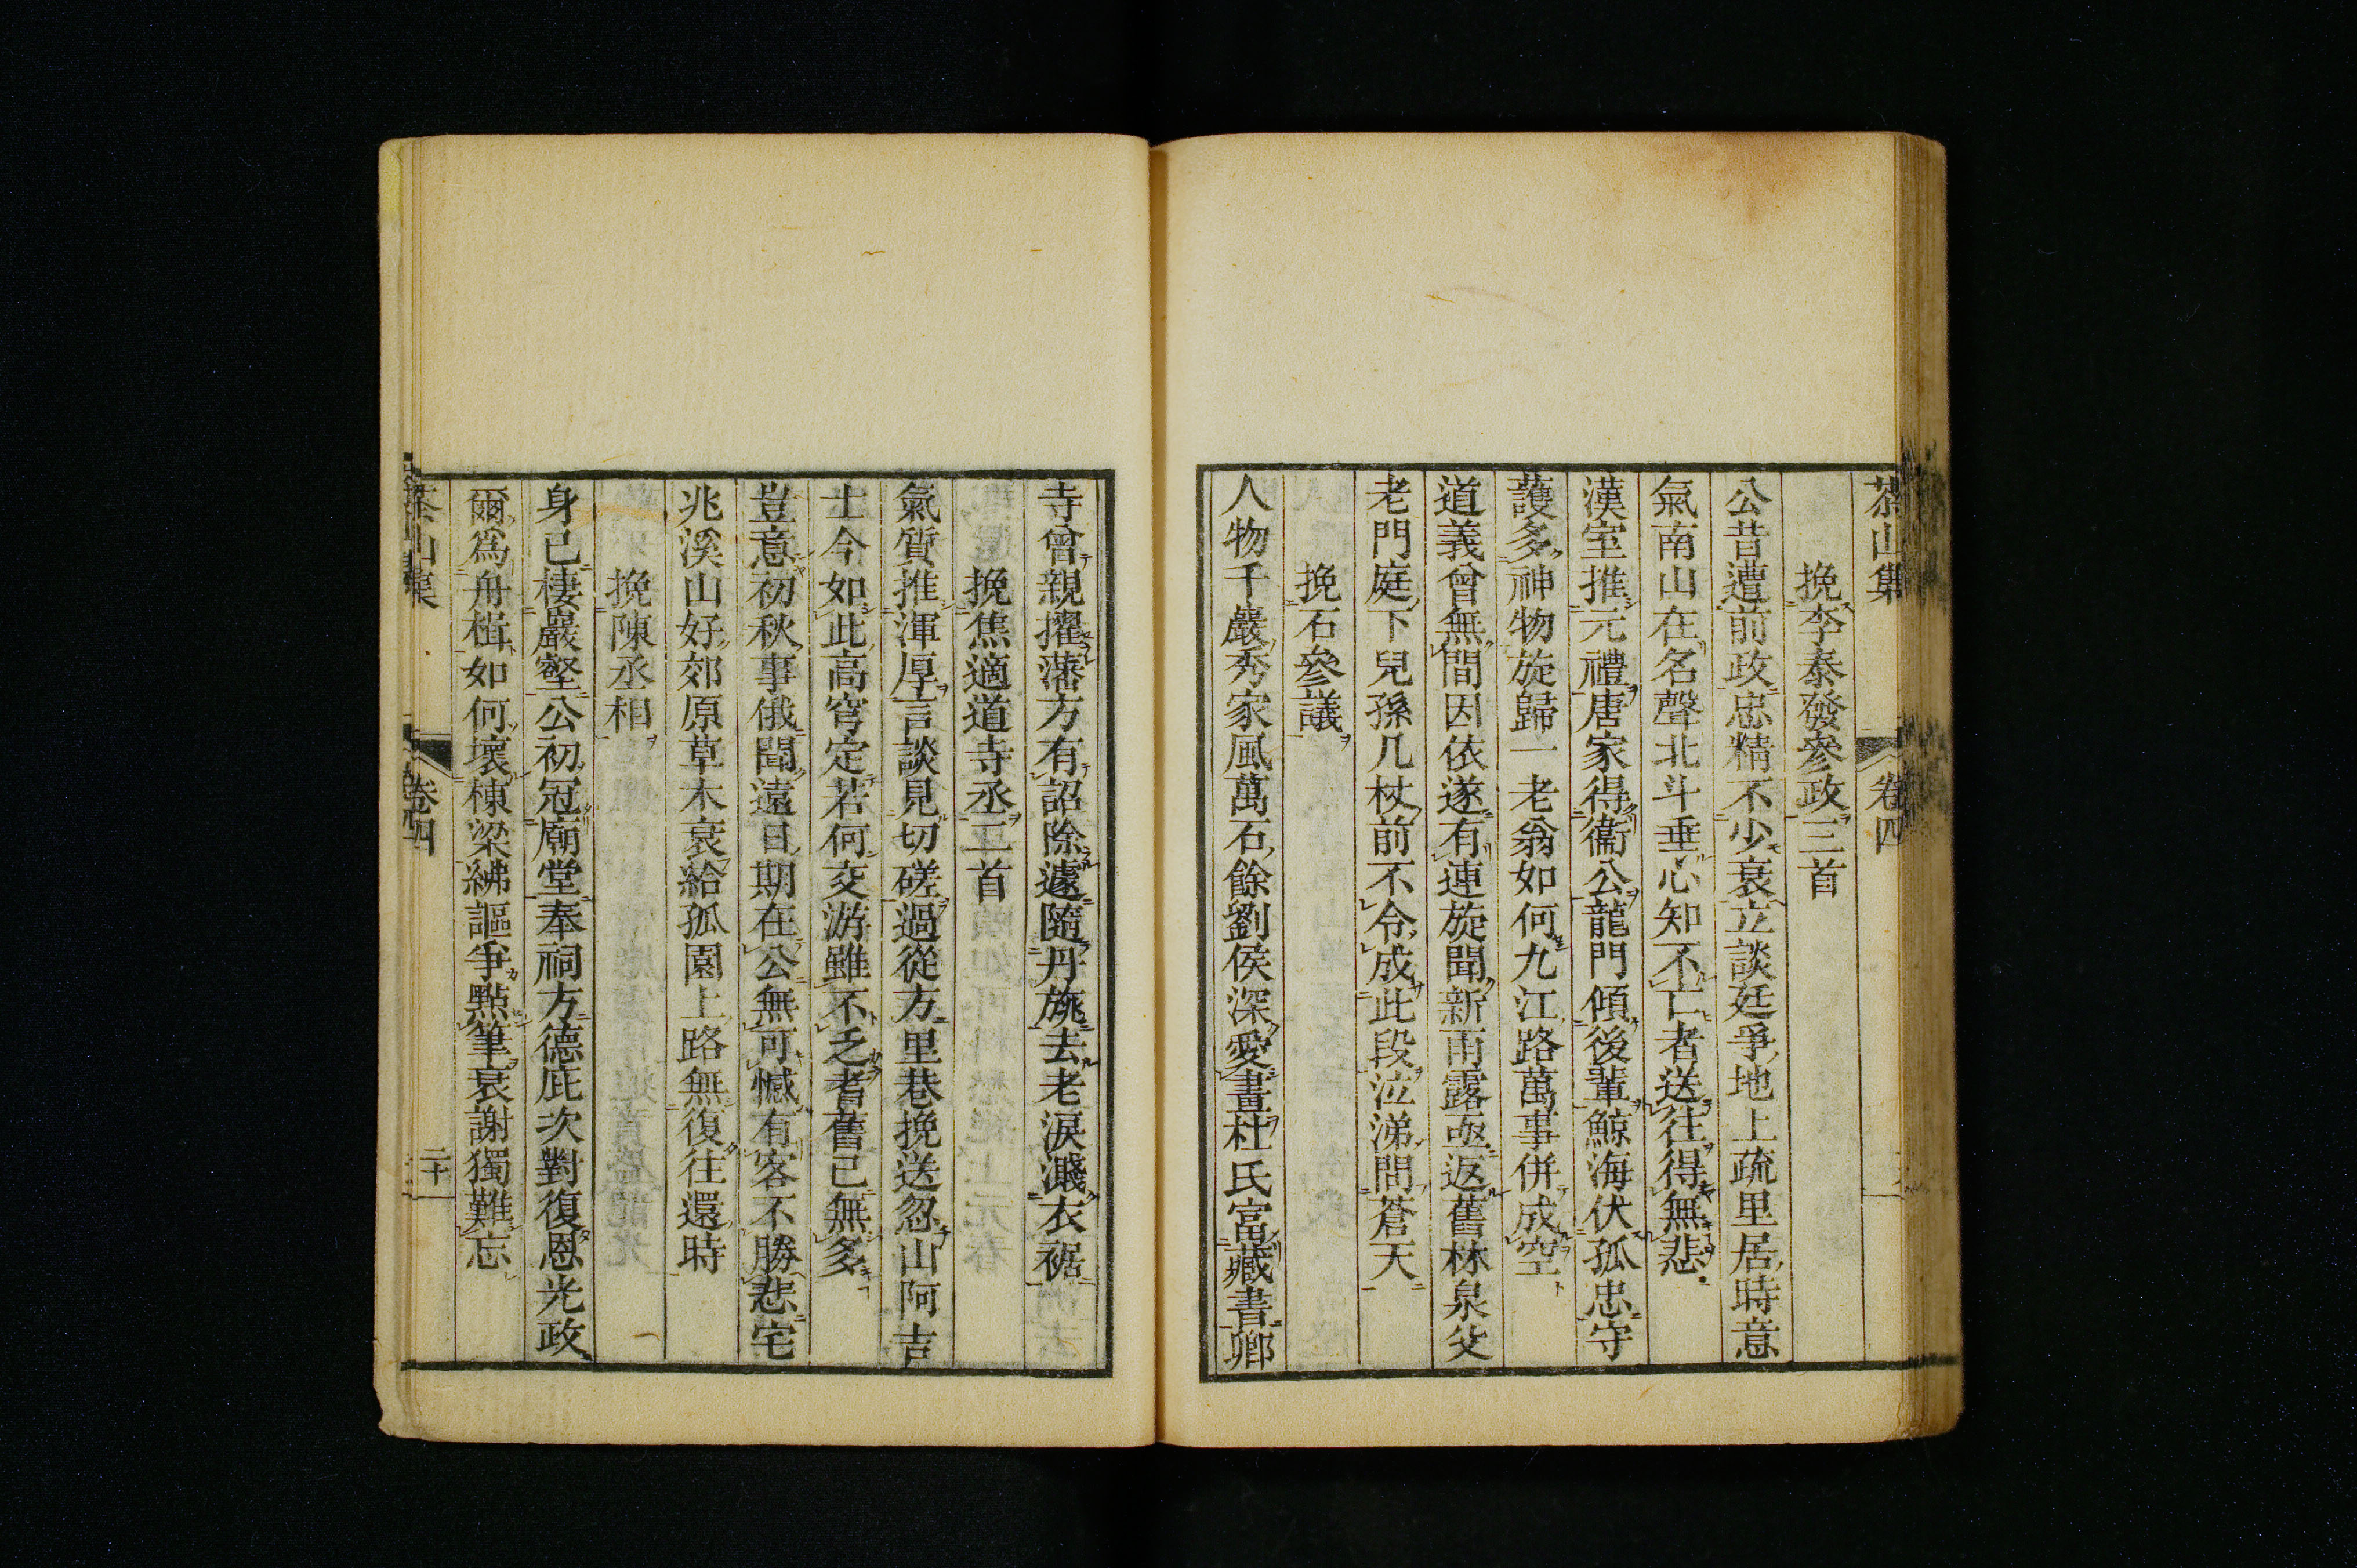 茶山集 卷四
挽李泰發參政三首
公昔遭前政忠精不少衰立談廷爭地上疏里居時意
氣南山在名聲北斗垂心知不亡者送往得無悲
漢室推元禮唐家得衞公龍門傾後輩鯨海伏孤忠守
護多神物旋歸一老翁如何九江路萬事併成空
道義曾無間因依遂有連旋聞新雨露亟返舊林泉父
老門庭下兒孫几杖前不令成此段泣涕問蒼天
挽石參議
人物千巖秀家風萬石餘劉侯深愛畫杜氏富藏書卿
寺曾親擢藩方有詔除遽隨丹旐去老淚濺衣裾
挽焦適道寺丞二首
氣質推渾厚言談見切磋過從方里巷挽送忽山阿吉
士今如此高穹定若何交游雖不乏耆舊已無多
豈意初秋事俄聞遠日期在公無可憾有客不勝悲宅
兆溪山好郊原草木衰給孤園上路無復往還時
挽陳丞相
身已棲巖壑公初冠廟堂奉祠方德庇次對復恩光政
爾爲舟楫如何壞棟梁紼謳爭點筆衰謝獨難忘
茶山集 卷四 二十